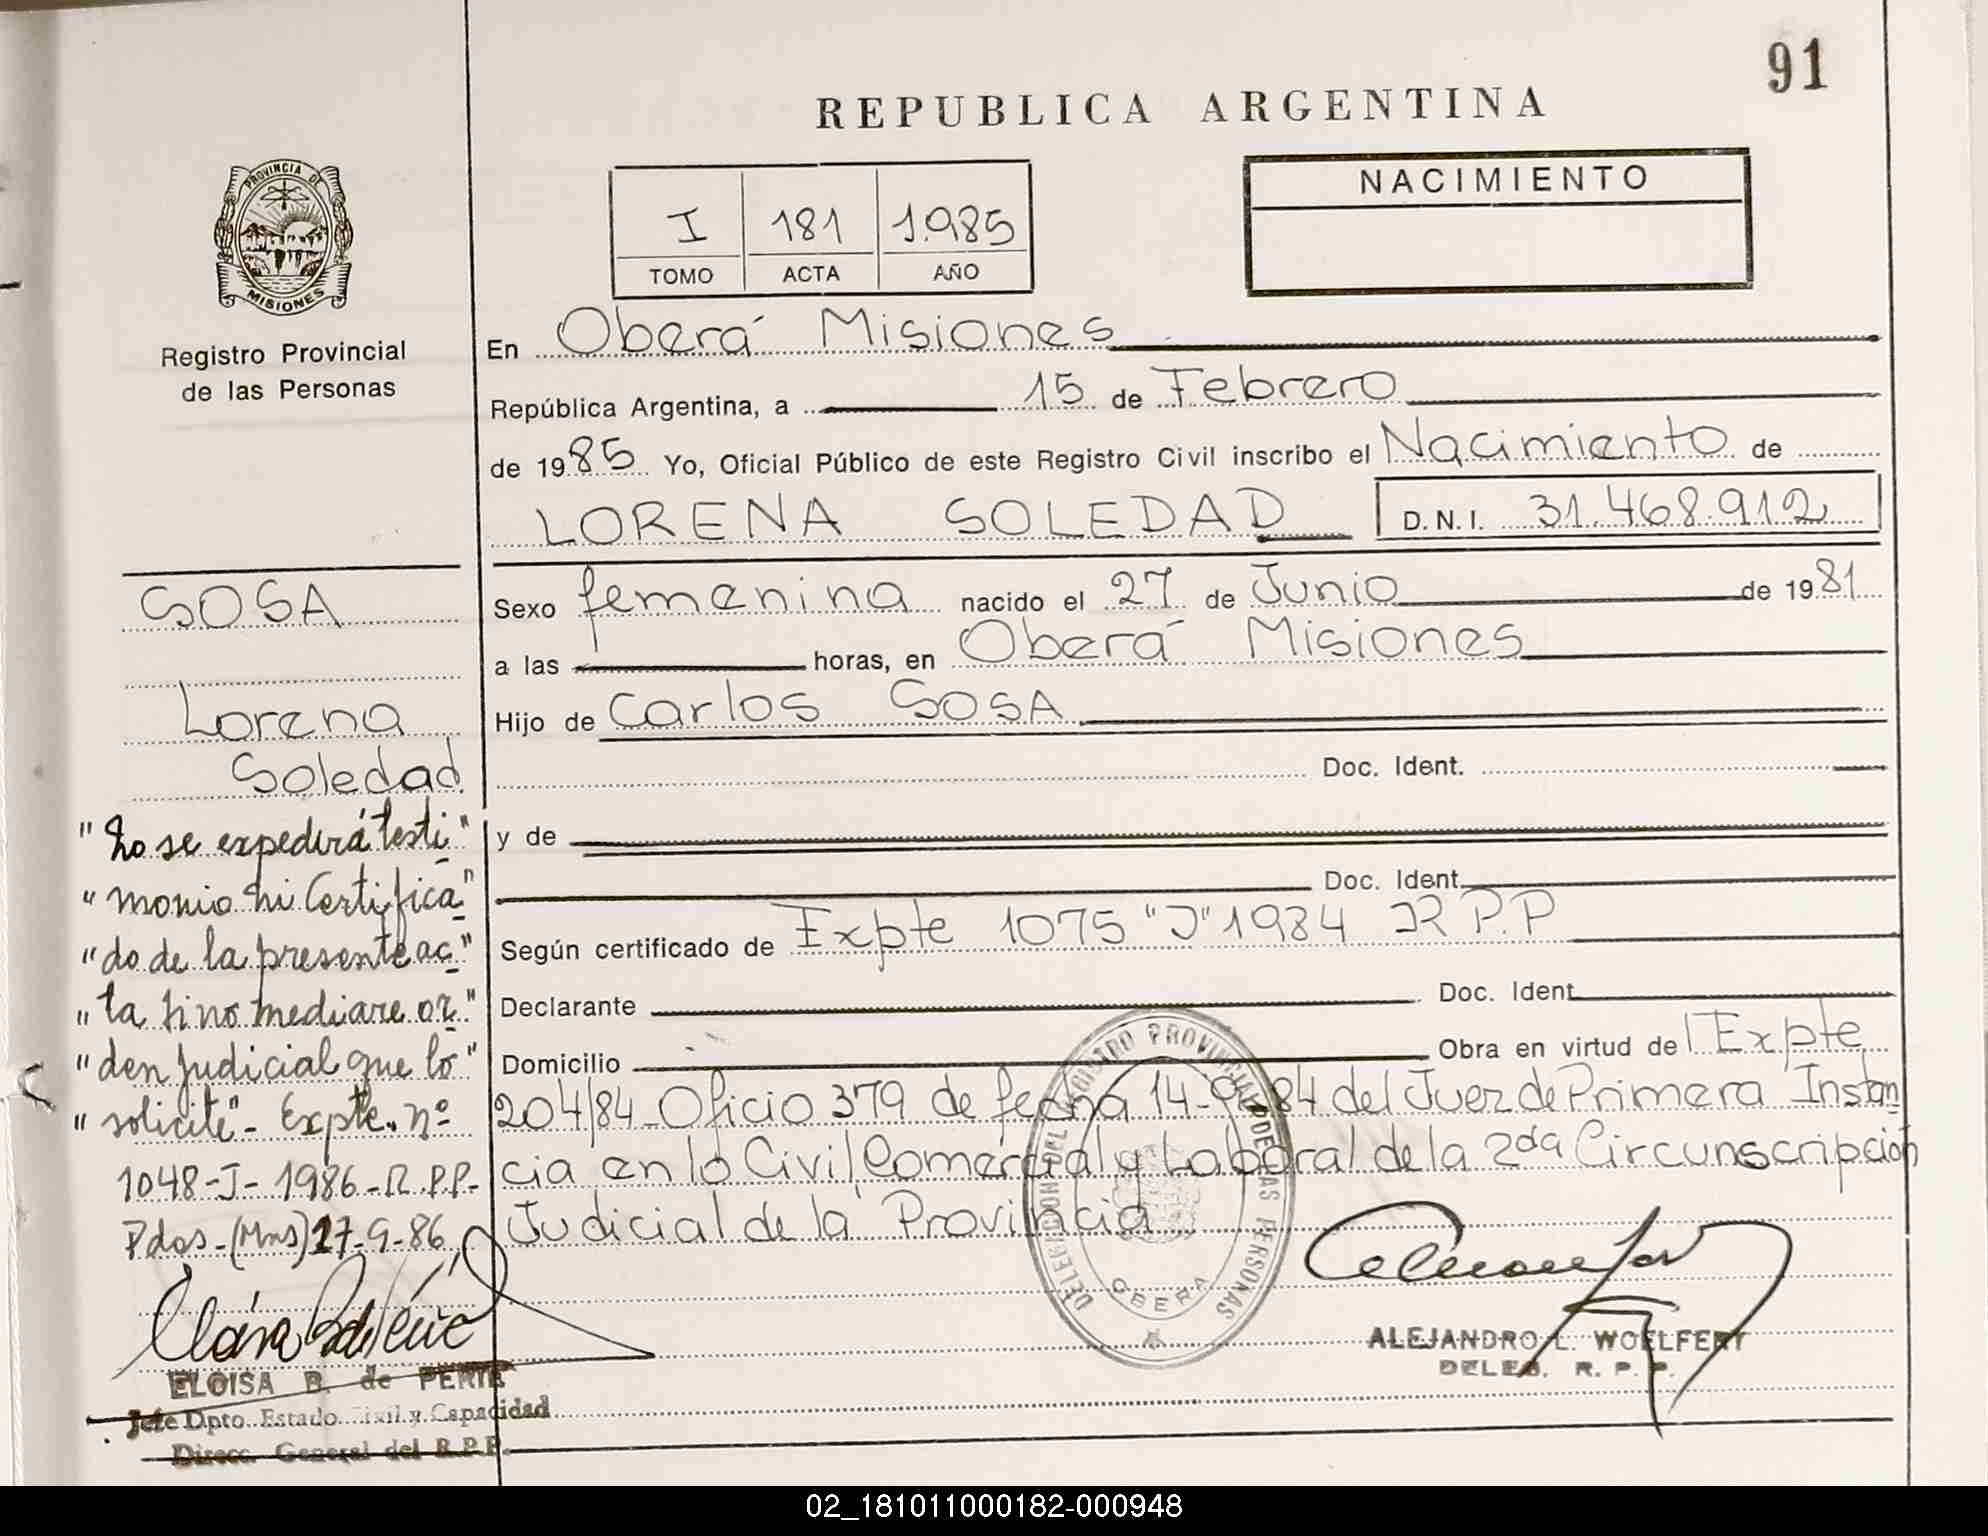 91
REPUBLICA ARGENTINA
PROVINCIA DE
MISIONES
Registro Provincial
de las Personas
I 181 1.985
TOMO ACTA AÑO
NACIMIENTO
En Oberá Misiones
República Argentina, a 15 de Febrero
de 1985 Yo, Oficial Público de este Registro Civil inscribo el Nacimiento de
LORENA SOLEDAD D.N.I. 31.468.912
Sexo femenina nacido el 27 de Junio de 1981
a las horas, en Oberá Misiones
Hijo de Carlos SOSA
Doc. Ident.
y de
Doc. Ident.
Según certificado de Expte 1075 "J" 1984 R P.P
Declarante Doc. Ident.
Domicilio Obra en virtud del Expte
204/84-Oficio 379 de fecha 14-9-84 del Juez de Primera Instan
cia en lo Civil, Comercial y Laboral de la 2da Circunscripción
Judicial de la Provincia
SOSA
Lorena
Soledad
"No se expedirá testi"
"monio ni Certifica"
"do de la presente ac"
"ta sino mediare or"
"den judicial que lo"
"solicite"- Expte. nº
1048-J-1986-R.P.P.-
Pdas-(Mns) 17-9-86
ELOISA B. de
Jefe Dpto. Estado Civil y Capacidad
Direcc. General del R.P.P.
DELEGACION DEL REGISTRO PROVINCIAL DE LAS PERSONAS
OBERA
ALEJANDRO L. WOELFERT
DELEG. R. P. P.
02_181011000182-000948